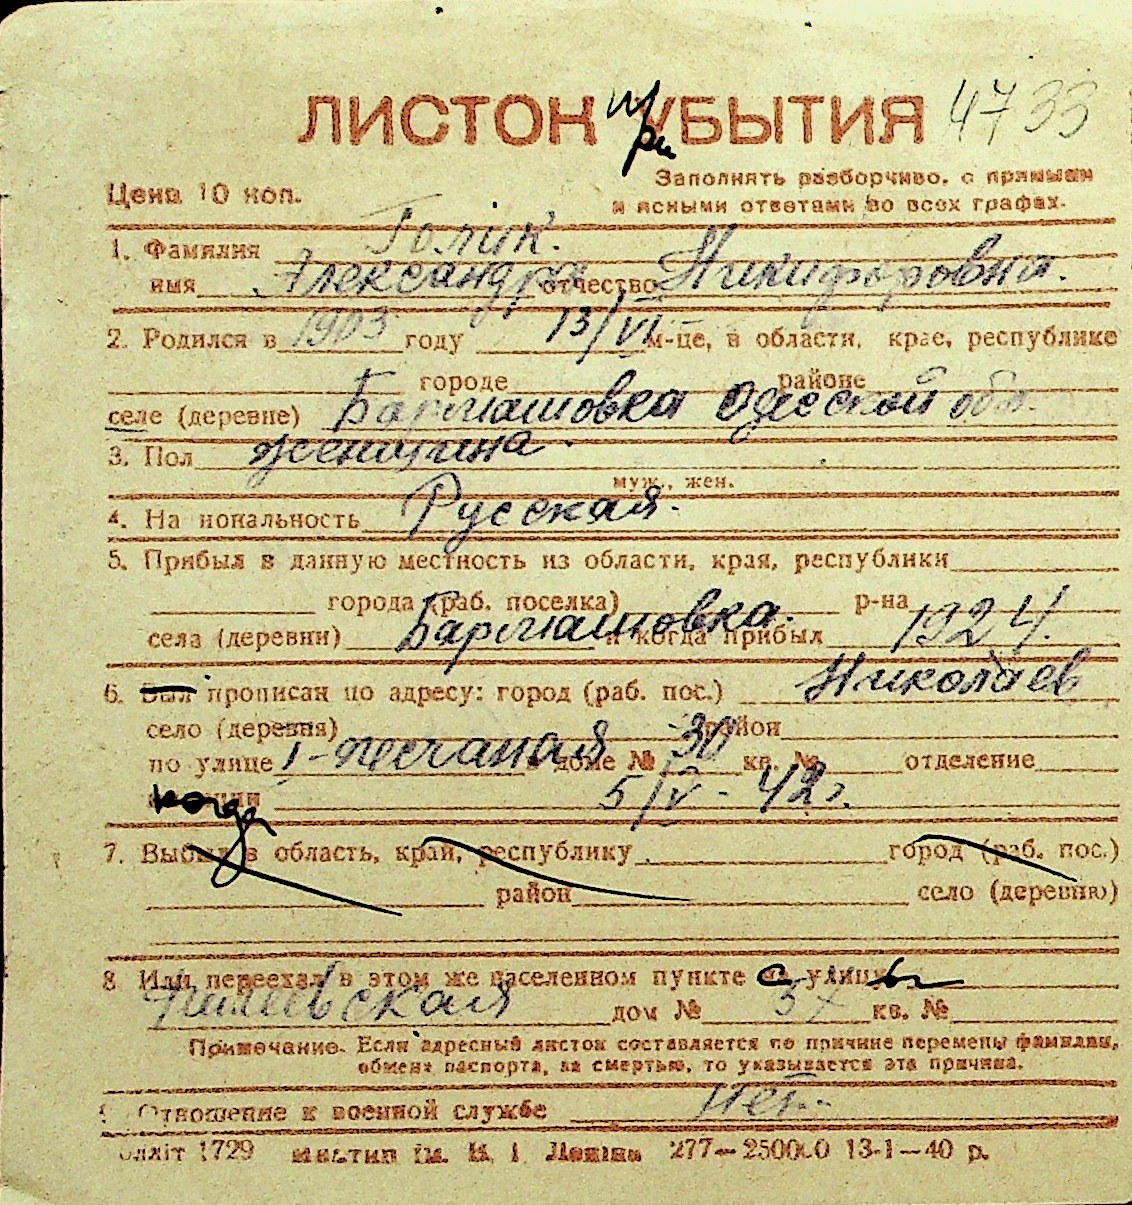 ЛИСТОК при УБЫТИЯ 4733
Цена 10 коп.
Заполнять разборчиво, с прямыми
и ясными ответами во всех графах.
1. Фамилия Голик.
имя Александра отчество Никифоровна.
2. Родился в 1903 году 13/VI м-це, в области, крае, республике
городе районе
селе (деревне) Бармашовка Одесской обл.
3. Пол женщина.
муж., жен.
4. На нональность Русская.
5. Прибыл в данную местность из области, края, республики
города (раб. поселка) р-на
села (деревни) Бармашовка. и когда прибыл 1924.
6. Был прописан по адресу: город (раб. пос.) Николаев
село (деревня) район
по улице 1-песчаная доме № 30 кв. № отделение
когда 5/IV-42г.
7. Выбыл в область, край, республику город (раб. пос.)
район село (деревню)
8. Или переехал в этом же населенном пункте с улицы
дом № 37 кв. №
Примечание. Если адресный листок составляется по причине перемены фамилии,
обмена паспорта, за смертью, то указывается эта причина.
9. Отношение к военной службе Нет.
1729 277—250000 13-1—40 р.